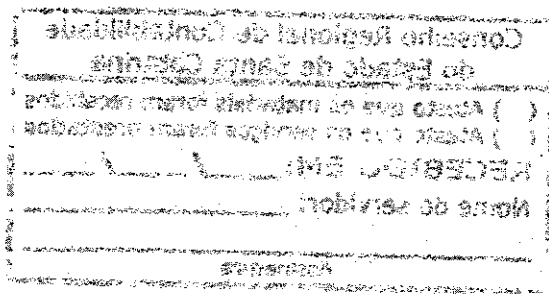 Conselho Regional de Contabilidade
do Estado de Santa Catarina
( ) Atesto que os materiais foram recebidos
( ) Atesto que os serviços foram prestados
RECEBIDO EM: ______/______/______
Nome do servidor: ______________
Assinatura